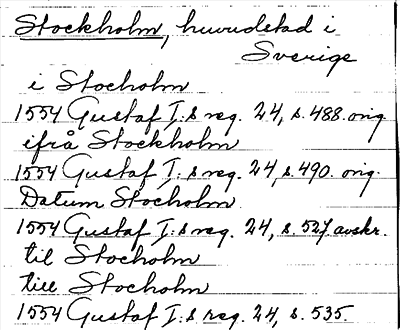 Stockholm, huvudstad i
Sverige
i Stocholm
1554 Gustaf I:s reg. 24, s. 488. orig.
ifrå Stockholm
1554 Gustaf I:s reg. 24, s. 490. orig.
Datum Stocholm
1554 Gustaf I:s reg. 24, s. 527 avskr.
til Stocholm
till Stocholm
1554 Gustaf I:s reg. 24, s. 535.